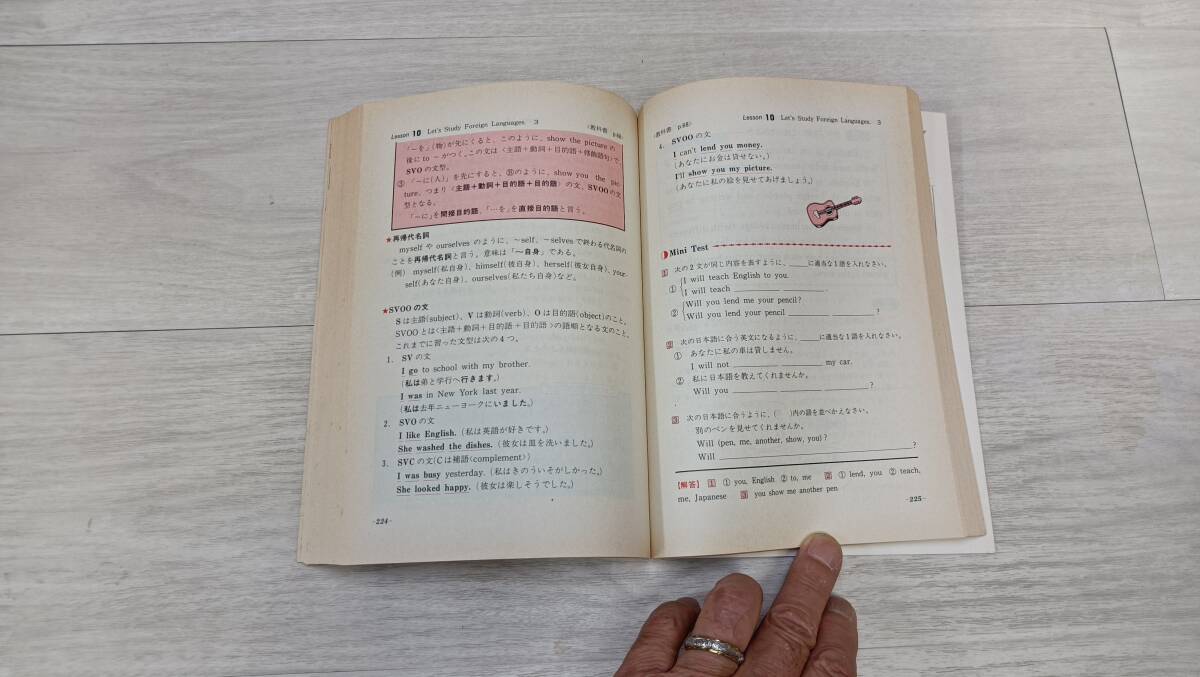 Lesson 10 Let's Study Foreign Languages. 3 〈教科書 p.88〉
「～を」(物)が先にくると、このように、show the picture の
後に to ～がつく。この文は〈主語＋動詞＋目的語＋修飾語句〉で、
SVO の文型。
③ 「～に(人)」を先にすると、⑧のように、show you the pic-
ture、つまり〈主語＋動詞＋目的語＋目的語〉の文、SVOO の文
型となる。
「～に」を間接目的語、「…を」を直接目的語と言う。
★再帰代名詞
myself や ourselves のように、～self、～selves で終わる代名詞の
ことを再帰代名詞と言う。意味は「～自身」である。
(例) myself(私自身)、himself(彼自身)、herself(彼女自身)、your-
self(あなた自身)、ourselves(私たち自身)など。
★SVOO の文
S は主語(subject)、V は動詞(verb)、O は目的語(object)のこと。
SVOO とは〈主語＋動詞＋目的語＋目的語〉の語順となる文のこと。
これまでに習った文型は次の4つ。
1. SV の文
I go to school with my brother.
(私は弟と学行へ行きます。)
I was in New York last year.
(私は去年ニューヨークにいました。)
2. SVO の文
I like English. (私は英語が好きです。)
She washed the dishes. (彼女は皿を洗いました。)
3. SVC の文(C は補語〈complement〉)
I was busy yesterday. (私はきのういそがしかった。)
She looked happy. (彼女は楽しそうでした。)
-224-
〈教科書 p.88〉 Lesson 10 Let's Study Foreign Languages. 3
4. SVOO の文
I can't lend you money.
(あなたにお金は貸せない。)
I'll show you my picture.
(あなたに私の絵を見せてあげましょう。)
Mini Test
1 次の2文が同じ内容を表すように、____に適当な1語を入れなさい。
① I will teach English to you.
I will teach ________ ________.
② Will you lend me your pencil?
Will you lend your pencil ________ ________?
2 次の日本語に合う英文になるように、____に適当な1語を入れなさい。
① あなたに私の車は貸しません。
I will not ________ ________ my car.
② 私に日本語を教えてくれませんか。
Will you ________ ________ ________?
3 次の日本語に合うように、( )内の語を並べかえなさい。
別のペンを見せてくれませんか。
Will (pen, me, another, show, you)?
Will ________________________?
【解答】 1 ① you, English ② to, me 2 ① lend, you ② teach,
me, Japanese 3 you show me another pen
-225-